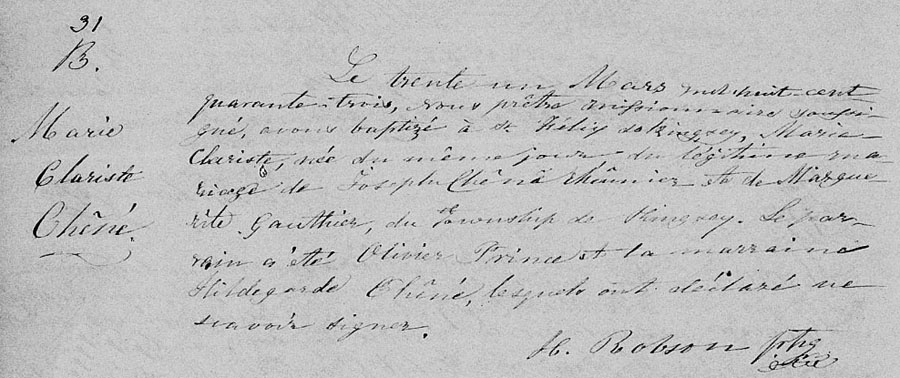 31
B.
Marie
Clariste
Chêné.
Le trente un Mars mil huit-cent
quarante-trois, nous prêtre missionnaire soussi-
gné, avons baptizé à St. Félix de Kingsey, Marie
Clariste, née du même jour du légitime ma-
riage de Joseph Chêné et de Margue-
rite Gauthier, du township de Kingsey. Le par-
rain a été Olivier Prince et la marraine
Hildegarde Chêné, lesquels ont déclaré ne
scavoir signer.
H. Robson ptre